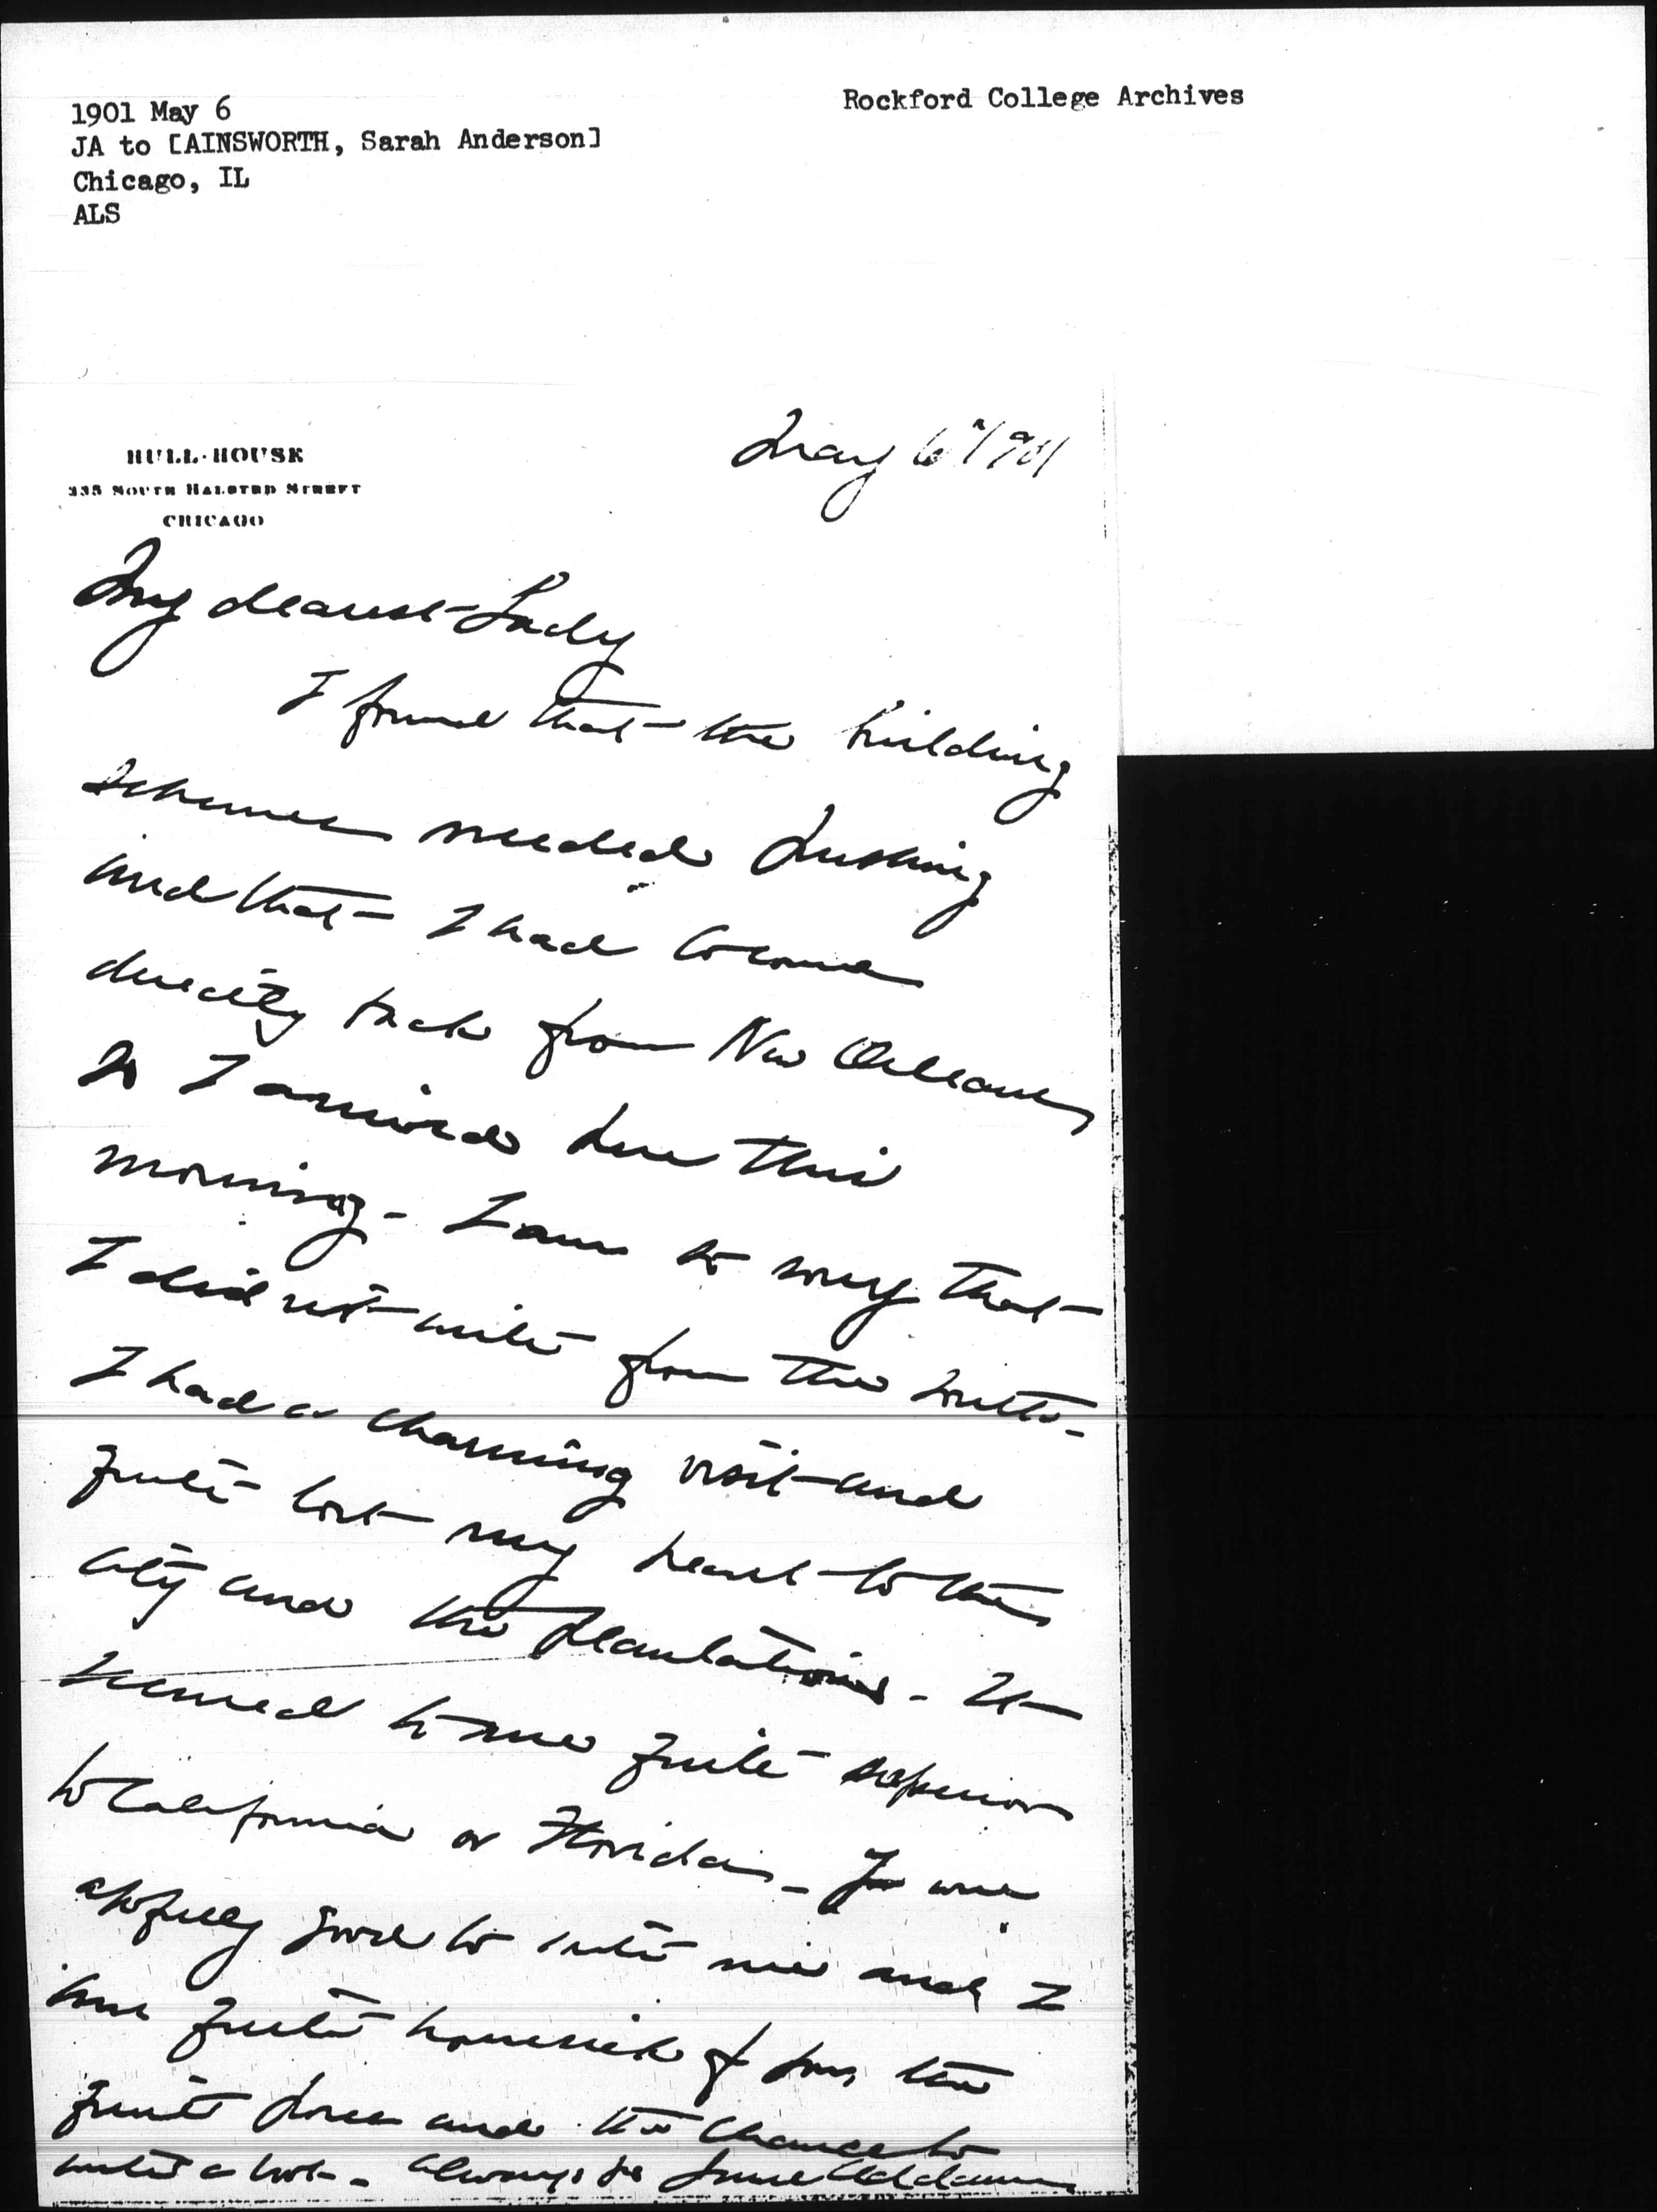 1901 May 6
JA to [AINSWORTH, Sarah Anderson]
Chicago, IL
ALS
Rockford College Archives
HULL-HOUSE
335 SOUTH HALSTED STREET
CHICAGO
May 6" 1901
My dearest Lady
I found that the building
schemes needed pushing
and that I had to come
directly back from New Orleans,
so I arrived here this
morning - I am so sorry that
I did not write from the South -
I had a charming visit and
quite lost my heart to the
city and the plantations - It
seemed to me quite superior
to California or Florida - You were
good to invite me and I
am quite homesick for the
quiet place and the chance to
write a book - Always yrs Jane Addams